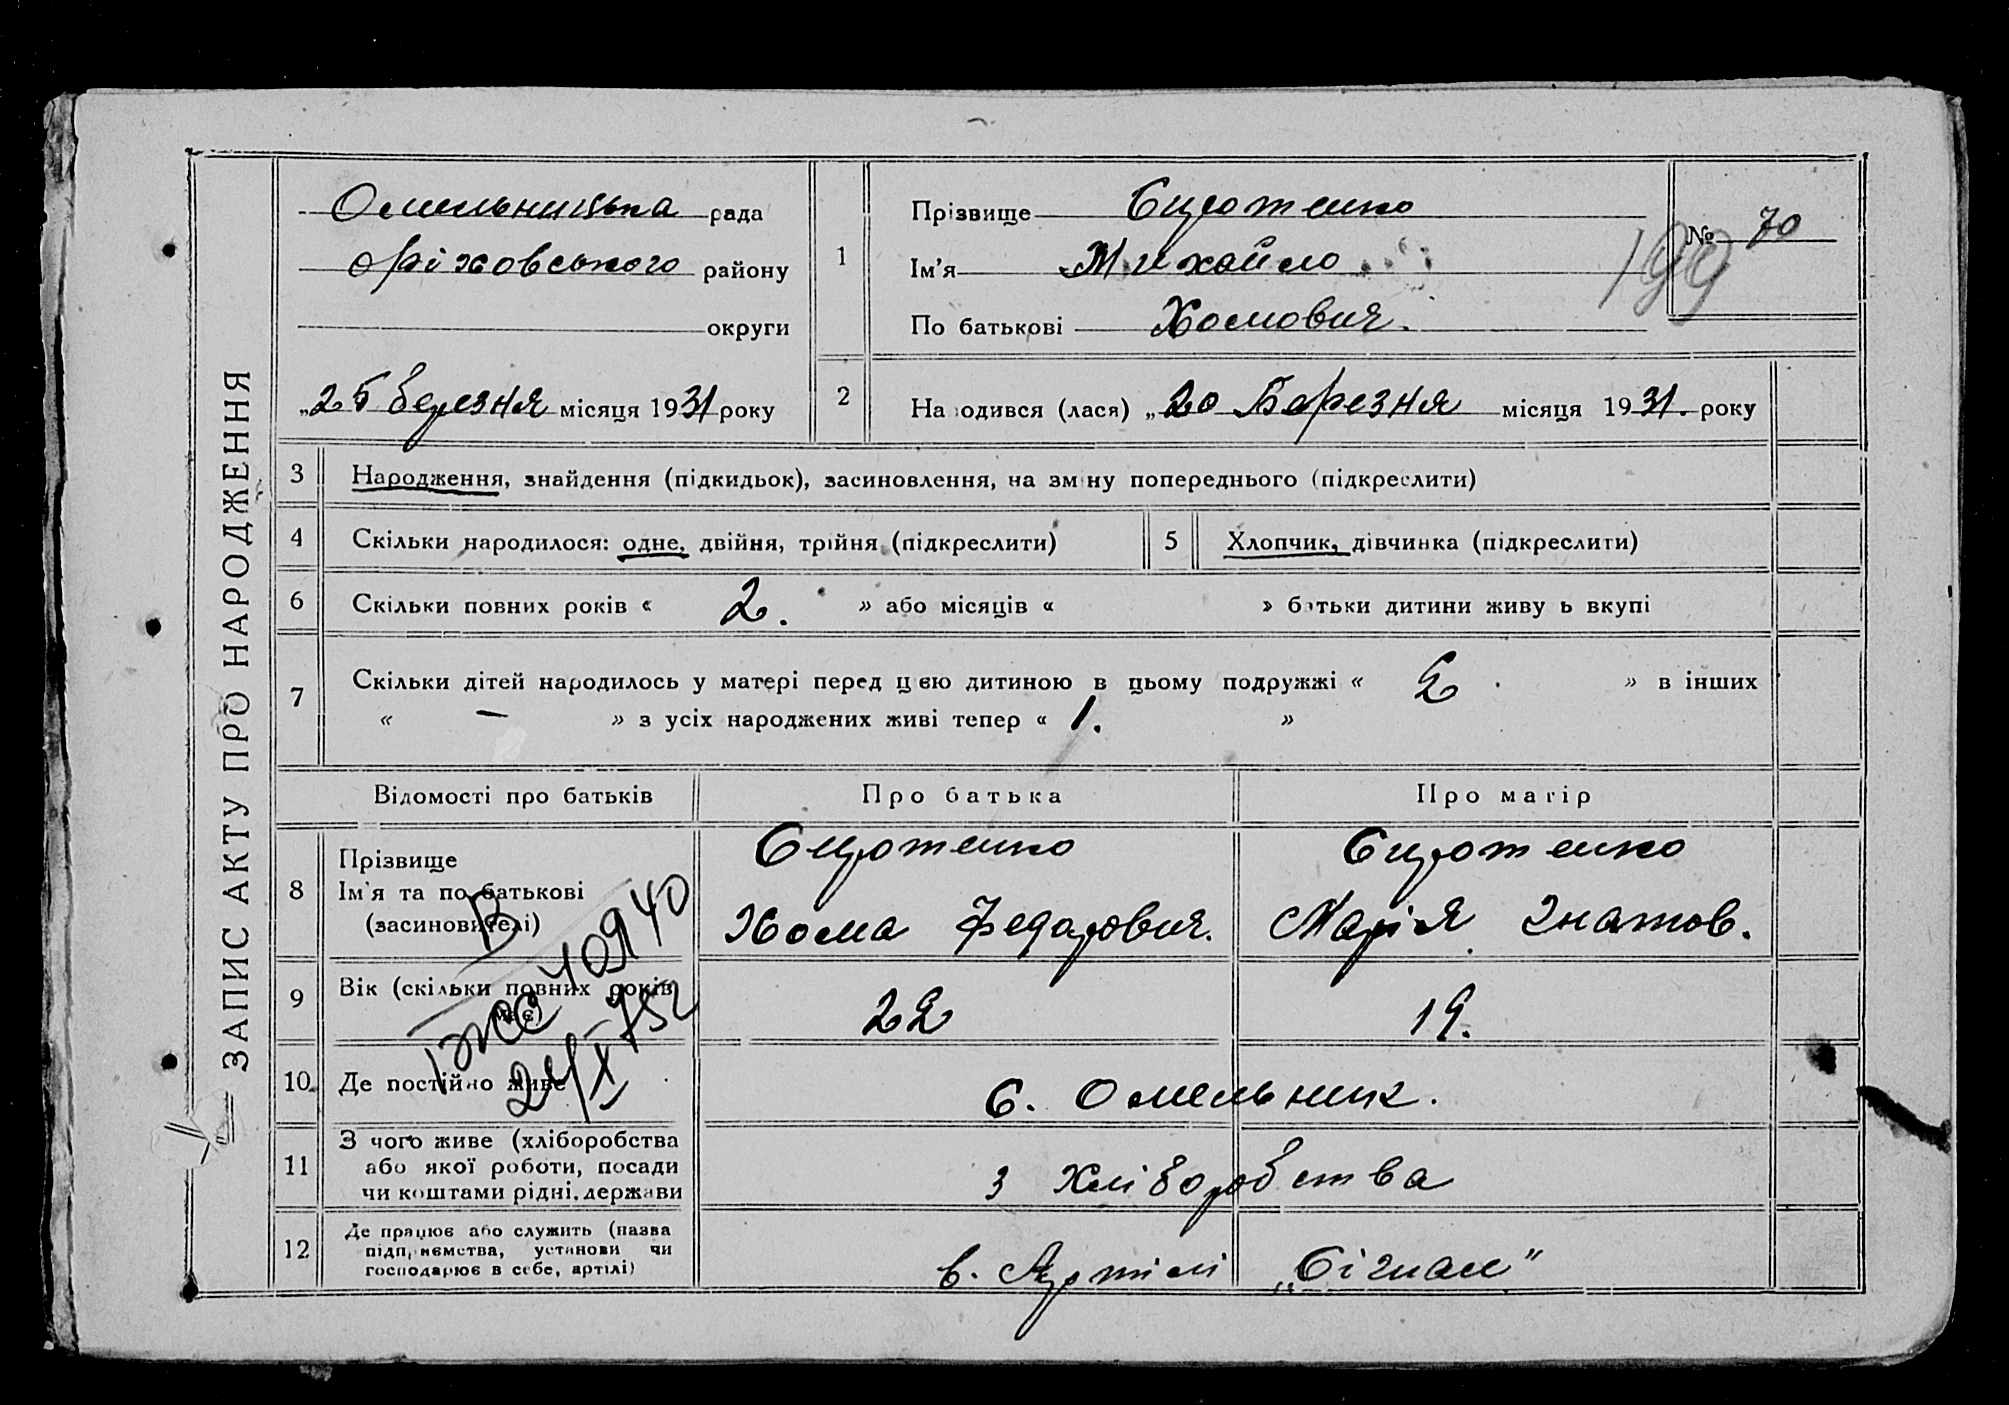 ЗАПИС АКТУ ПРО НАРОДЖЕННЯ
Омельницька рада
Оріховського району
округи
„25 березня місяця 1931 року
1
Прізвище Сиротенко
Ім'я Михайло
По батькові Хомович.
№ 70
199
2 На одився (лася) „20 Березня місяця 1931. року
3 Народження, знайдення (підкидьок), засиновлення, на зм ну попереднього (підкреслити)
4 Скільки народилося: одне, двійня, трійня (підкреслити)
5 Хлопчик, дівчинка (підкреслити)
6 Скільки повних років « 2. » або місяців « » батьки дитини живу ь вкупі
7 Скільки дітей народилось у матері перед цією дитиною в цьому подружжі « 2 » в інших
« — » з усіх народжених живі тепер « 1. »
Відомості про батьків Про батька Про матір
8 Прізвище
Ім'я та по батькові
(засиновителі)
Сиротенко
Хома Федорович.
Сиротенко
Марія Гнатов.
9 Вік (скільки повних років
має)
22
19.
В
409140
10 Де постійно живе
С. Омельник.
11 З чого живе (хліборобства
або якої роботи, посади
чи коштами рідні, держави
з Хліборобства
12 Де працює або служить (назва
підприємства, установи чи
господарює в себе, артілі)
в. Артілі „Сігнал"